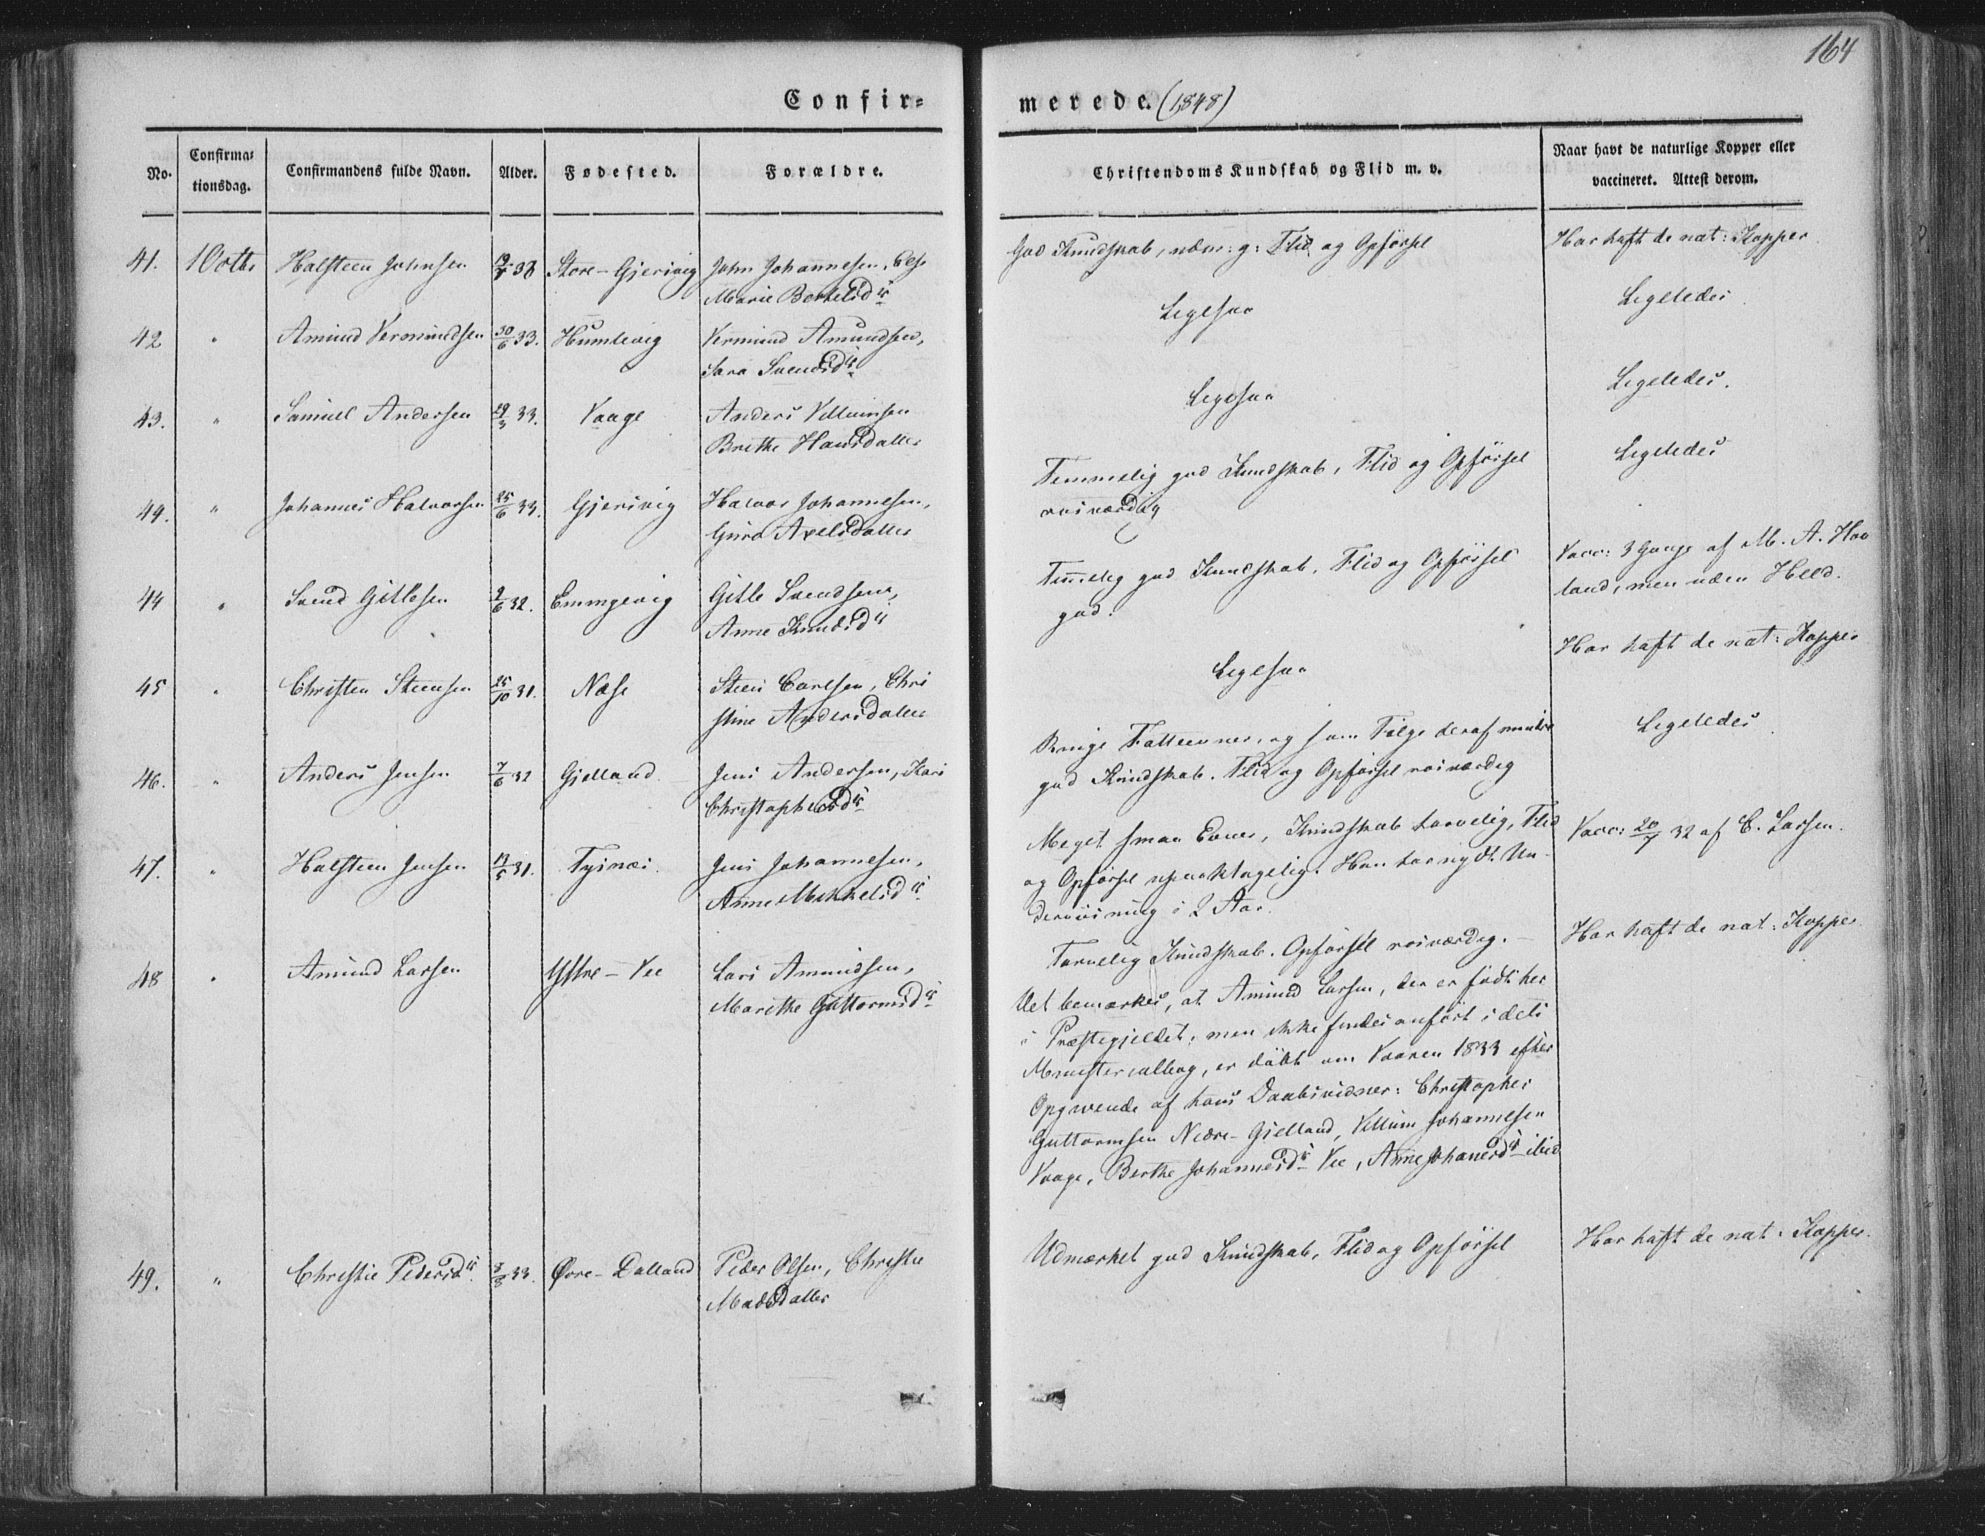 164
Confir=
merede. (1848)
No.
Confirma=
tionsdag.
Confirmandens fulde Navn.
Alder.
Fødested.
Forældre.
Christendoms Kundskab og Flid m. v.
Naar havt de naturlige Kopper eller
vaccineret. Attest derom.
41. 1 Octbr Halsteen Johnsen Store-Gjerivig John Johannesen, Else
Marie Bertelsdr
God Kundskab, Flid og Opførsel
Har haft de nat: Kopper
42 " Amund Vermundsen 30/6 33. Humlevig Vermund Amundsen,
Sara Svendsdr
Ligesaa
Ligeledes
43. " Samuel Andersen 29/3 33. Vaage Anders Villumsen
Brithe Hansdatter
Ligesaa
Ligeledes.
49. " Johannes Halvorsen 25/6 33. Gjerivig Halvor Johannesen,
Guro Axelsdatter
Temmelig god Kundskab, Flid og Opførsel
roisværdig
Ligeledes
44 " Svend Gitlesen 2/6 32. Emmgevig Gitle Svendsen,
Anne Knudsdr
Temmelig god Kundskab, Flid og Opførsel
god.
Vacc: 3 Gange af M. A. Hov
land, men uden Held.
45 " Christen Steensen 25/10 31. Næse Steen Carlsen, Chri
stine Andersdatter
Ligesaa
Har haft de nat: Kopper
46. " Anders Jensen 7/6 32 Gjelland Jens Andersen, Kari
Christophersdr
Ringe Fatteevner, og som Følge deraf mindre
god Kundskab. Flid og Opførsel roisværdig
Ligeledes
47. " Halsteen Jensen 13/5 31. Tysnæs Jens Johannesen,
Anne Mikkelsdr
Meget smaa Evner, Kundskab tarvelig, Flid
og Opførsel upaaklagelig. Han har nydt Un-
dervisning i 2 Aar.
Vacc: 20/7 32 af C. Larsen.
48 " Amund Larsen Ystre-Vee Lars Amundsen,
Marithe Guttormsdr
Tarvelig Kundskab. Opførsel roisværdig. -
Det bemærkes, at Amund Larsen, der er født her
i Præstegjeldet, men ikke findes anført i dets
Ministerialbog, er døbt om Vaaren 1833 efter
Opgivende af hans Daabsvidner: Christopher
Guttormsen Nedre-Gjelland, Villum Johannesen
Vaage, Berthe Johannesdr Vee, Anne Johanesdr ibid
Har haft de nat: Kopper
49. " Christie Pedersdr 33. Øvre-Dalland Peder Olsen, Christie
Madsdatter
Udmærket god Kundskab, Flid og Opførsel
Har haft de nat: Kopper.